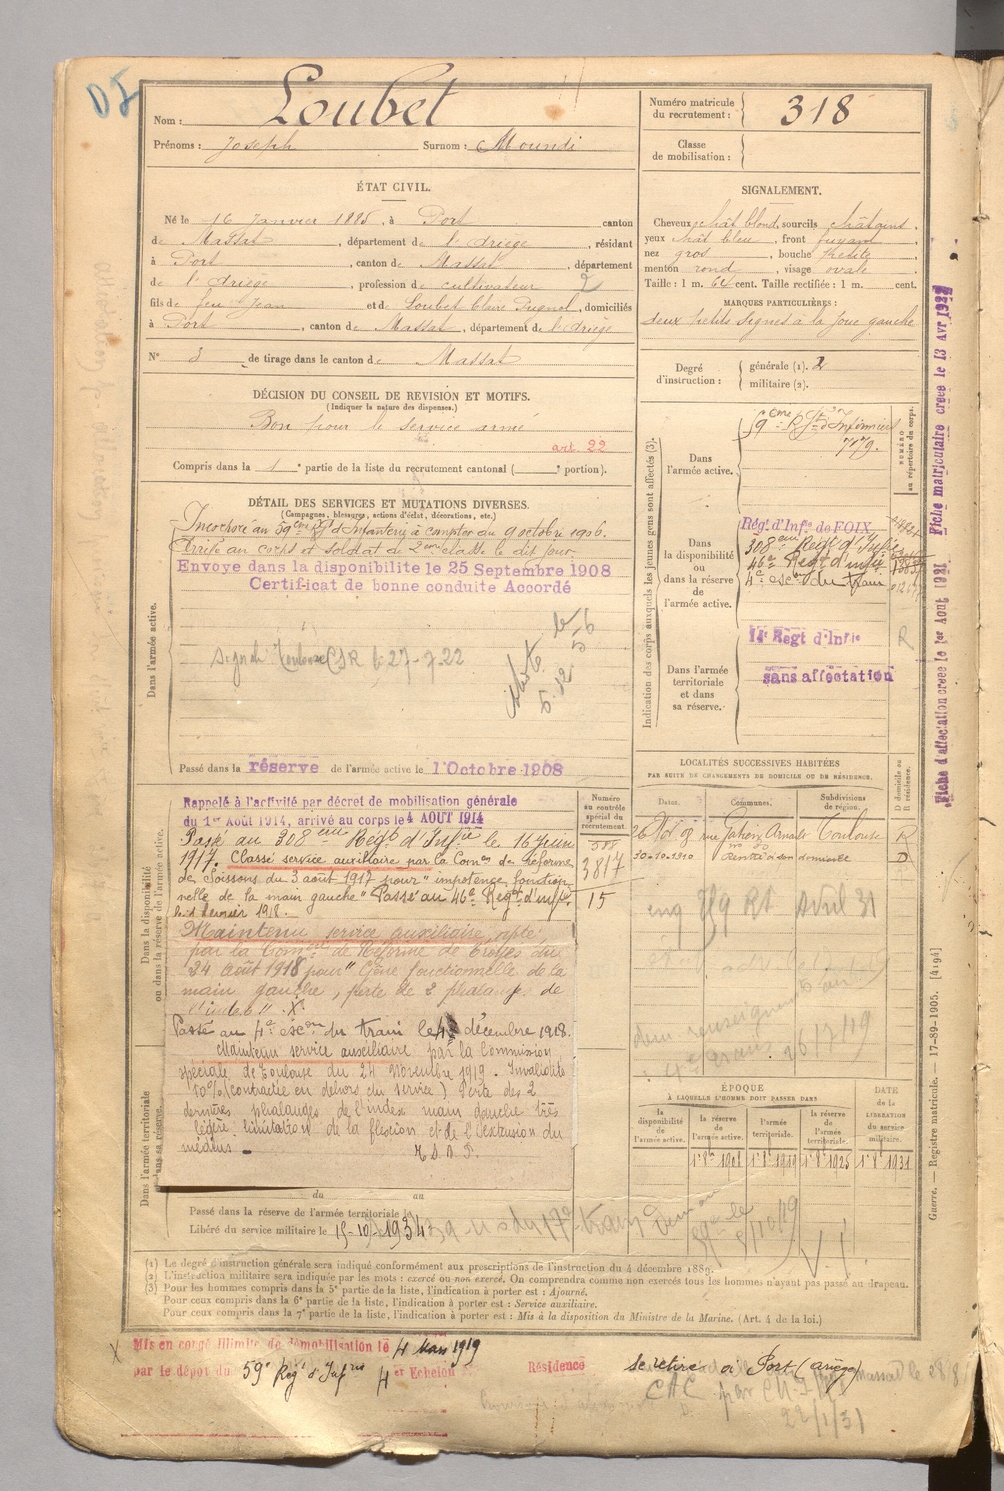 Nom : Loubet
Prénoms : Joseph Surnom : Moundi
Numéro matricule du recrutement : 318
Classe de mobilisation :
ÉTAT CIVIL.
Né le 16 Janvier 1885, à Port canton
de Massat, département de l'Ariège, résidant
à Port, canton de Massat, département
de l'Ariège, profession de cultivateur 2
fils de feu Jean et de Loubet Claire Pugnol, domiciliés
à Port, canton de Massat, département de l'Ariège
N° 3 de tirage dans le canton de Massat
SIGNALEMENT.
Cheveux chât blond, sourcils châtains,
yeux chât bleu, front fuyant
nez gros, bouche petite
menton rond, visage ovale
Taille : 1 m. 64 cent. Taille rectifiée : 1 m. cent.
MARQUES PARTICULIÈRES :
deux petits signes à la joue gauche
Degré d'instruction : générale (1). 2
militaire (2).
DÉCISION DU CONSEIL DE REVISION ET MOTIFS.
(Indiquer la nature des dispenses.)
Bon pour le service armé
art. 22
Compris dans la 1e partie de la liste du recrutement cantonal ( e portion).
DÉTAIL DES SERVICES ET MUTATIONS DIVERSES.
(Campagnes, blessures, actions d'éclat, décorations, etc.)
Incorporé au 59eme Rgt d'Infanterie à compter du 9 octobre 1906.
Arrivé au corps et soldat de 2eme classe le dit jour.
Envoye dans la disponibilite le 25 Septembre 1908
Certificat de bonne conduite Accordé
Toulouse 27-7-22
Dans l'armée active.
Passé dans la réserve de l'armée active le 1 Octobre 1908
Indication des corps auxquels les jeunes gens sont affectés (3).
Dans l'armée active.
59eme Rgt d'Infanterie
7179.
NUMÉRO au répertoire du corps.
Dans la disponibilité ou dans la réserve de l'armée active.
Régt. d'Infie de FOIX
308eme Régt d'Infie
46e Régt d'infie
4e escon du train
14e Regt d'Infie
R
Dans l'armée territoriale et dans sa réserve.
sans affectation
Fiche d'affectation creee le 1er Aout 1921
Fiche matriculaire creee le 13 Avr 1922
LOCALITÉS SUCCESSIVES HABITÉES
PAR SUITE DE CHANGEMENTS DE DOMICILE OU DE RÉSIDENCE.
Dates. Communes. Subdivisions de région. D domicile ou R résidence.
rue Toulouse R
30-10-1910 Rentré à son domicile D
Avril 31
Dans la disponibilité ou dans la réserve de l'armée active.
Rappelé à l'activité par décret de mobilisation générale
du 1er Août 1914, arrivé au corps le 4 AOUT 1914
Passé au 308eme Régt d'Infie le 16 Juin
1917. Classé service auxiliaire par la Comon de réforme
de Soissons du 3 août 1917 pour "impotence fonction
nelle de la main gauche" Passé au 46e Régt d'infie
le 1 1918.
Maintenu service auxiliaire apte
par la Comon de Réforme de Troyes du
24 Août 1918 pour "Gêne fonctionnelle de la
main gauche, perte de 2 phalanges de
l'index".
Passé au 4e escon du train le décembre 1918.
Maintenu service auxiliaire par la Commission
spéciale de Toulouse du 24 Novembre 1919. Invalidité
10% (contractée en dehors du service) Perte des 2
dernières phalanges de l'index main gauche très
légère limitation de la flexion et de l'extension du
médius.
Numéro au contrôle spécial du recrutement.
3817
15
ÉPOQUE
À LAQUELLE L'HOMME DOIT PASSER DANS
la disponibilité de l'armée active. la réserve de l'armée active. l'armée territoriale. la réserve de l'armée territoriale. DATE de la LIBÉRATION du service militaire.
1 8bre 1908 1 8bre 1919 1 8bre 1925 1 8bre 1931
Dans l'armée territoriale et dans sa réserve.
du au
Passé dans la réserve de l'armée territoriale le
Libéré du service militaire le 15-10-1934
(1) Le degré d'instruction générale sera indiqué conformément aux prescriptions de l'instruction du 4 décembre 1889.
(2) L'instruction militaire sera indiquée par les mots : exercé ou non exercé. On comprendra comme non exercés tous les hommes n'ayant pas passé au drapeau.
(3) Pour les hommes compris dans la 5e partie de la liste, l'indication à porter est : Ajourné.
Pour ceux compris dans la 6e partie de la liste, l'indication à porter est : Service auxiliaire.
Pour ceux compris dans la 7e partie de la liste, l'indication à porter est : Mis à la disposition du Ministre de la Marine. (Art. 4 de la loi.)
Guerre. — Registre matricule. — 17-89-1905. [4194]
X Mis en congé illimité de démobilisation le 4 Mars 1919
par le dépôt du 59e Rég d'Infrie 4er Echelon Résidence se retire à Port (Ariège)
22/1/31